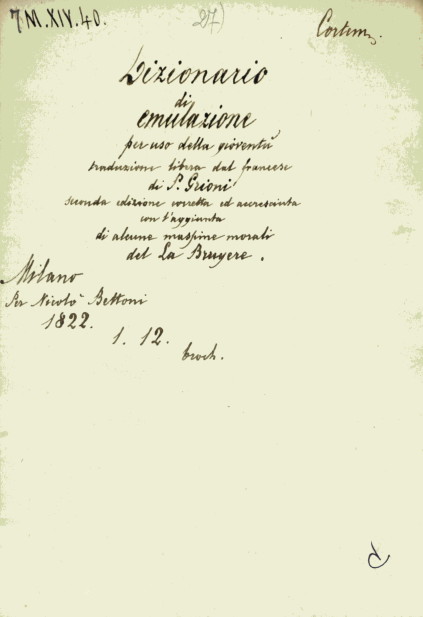 7 M.XIV.40.
27)
Dizionario
di
emulazione
per uso della gioventù
traduzione libera dal francese
di S. Grioni
seconda edizione corretta ed accresciuta
con l'aggiunta
di alcune massime morali
del La Bruyere.
Milano
Per Nicolò Bettoni
1822.
1. 12.
broch.